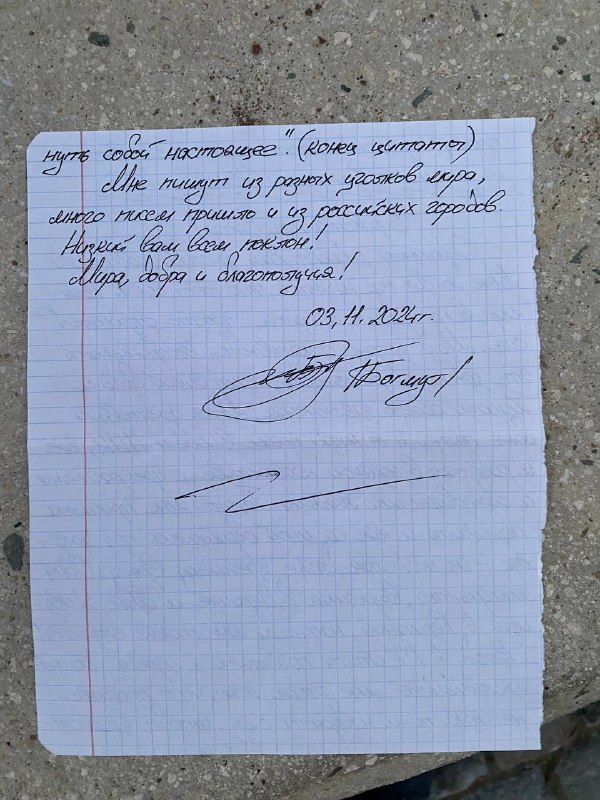 нуть собой настоящее". (конец цитаты)
Мне пишут из разных уголков мира,
много писем пришло и из российских городов.
Низкий вам всем поклон!
Мира, добра и благополучия!
03.11.2024г.
/Богмут/